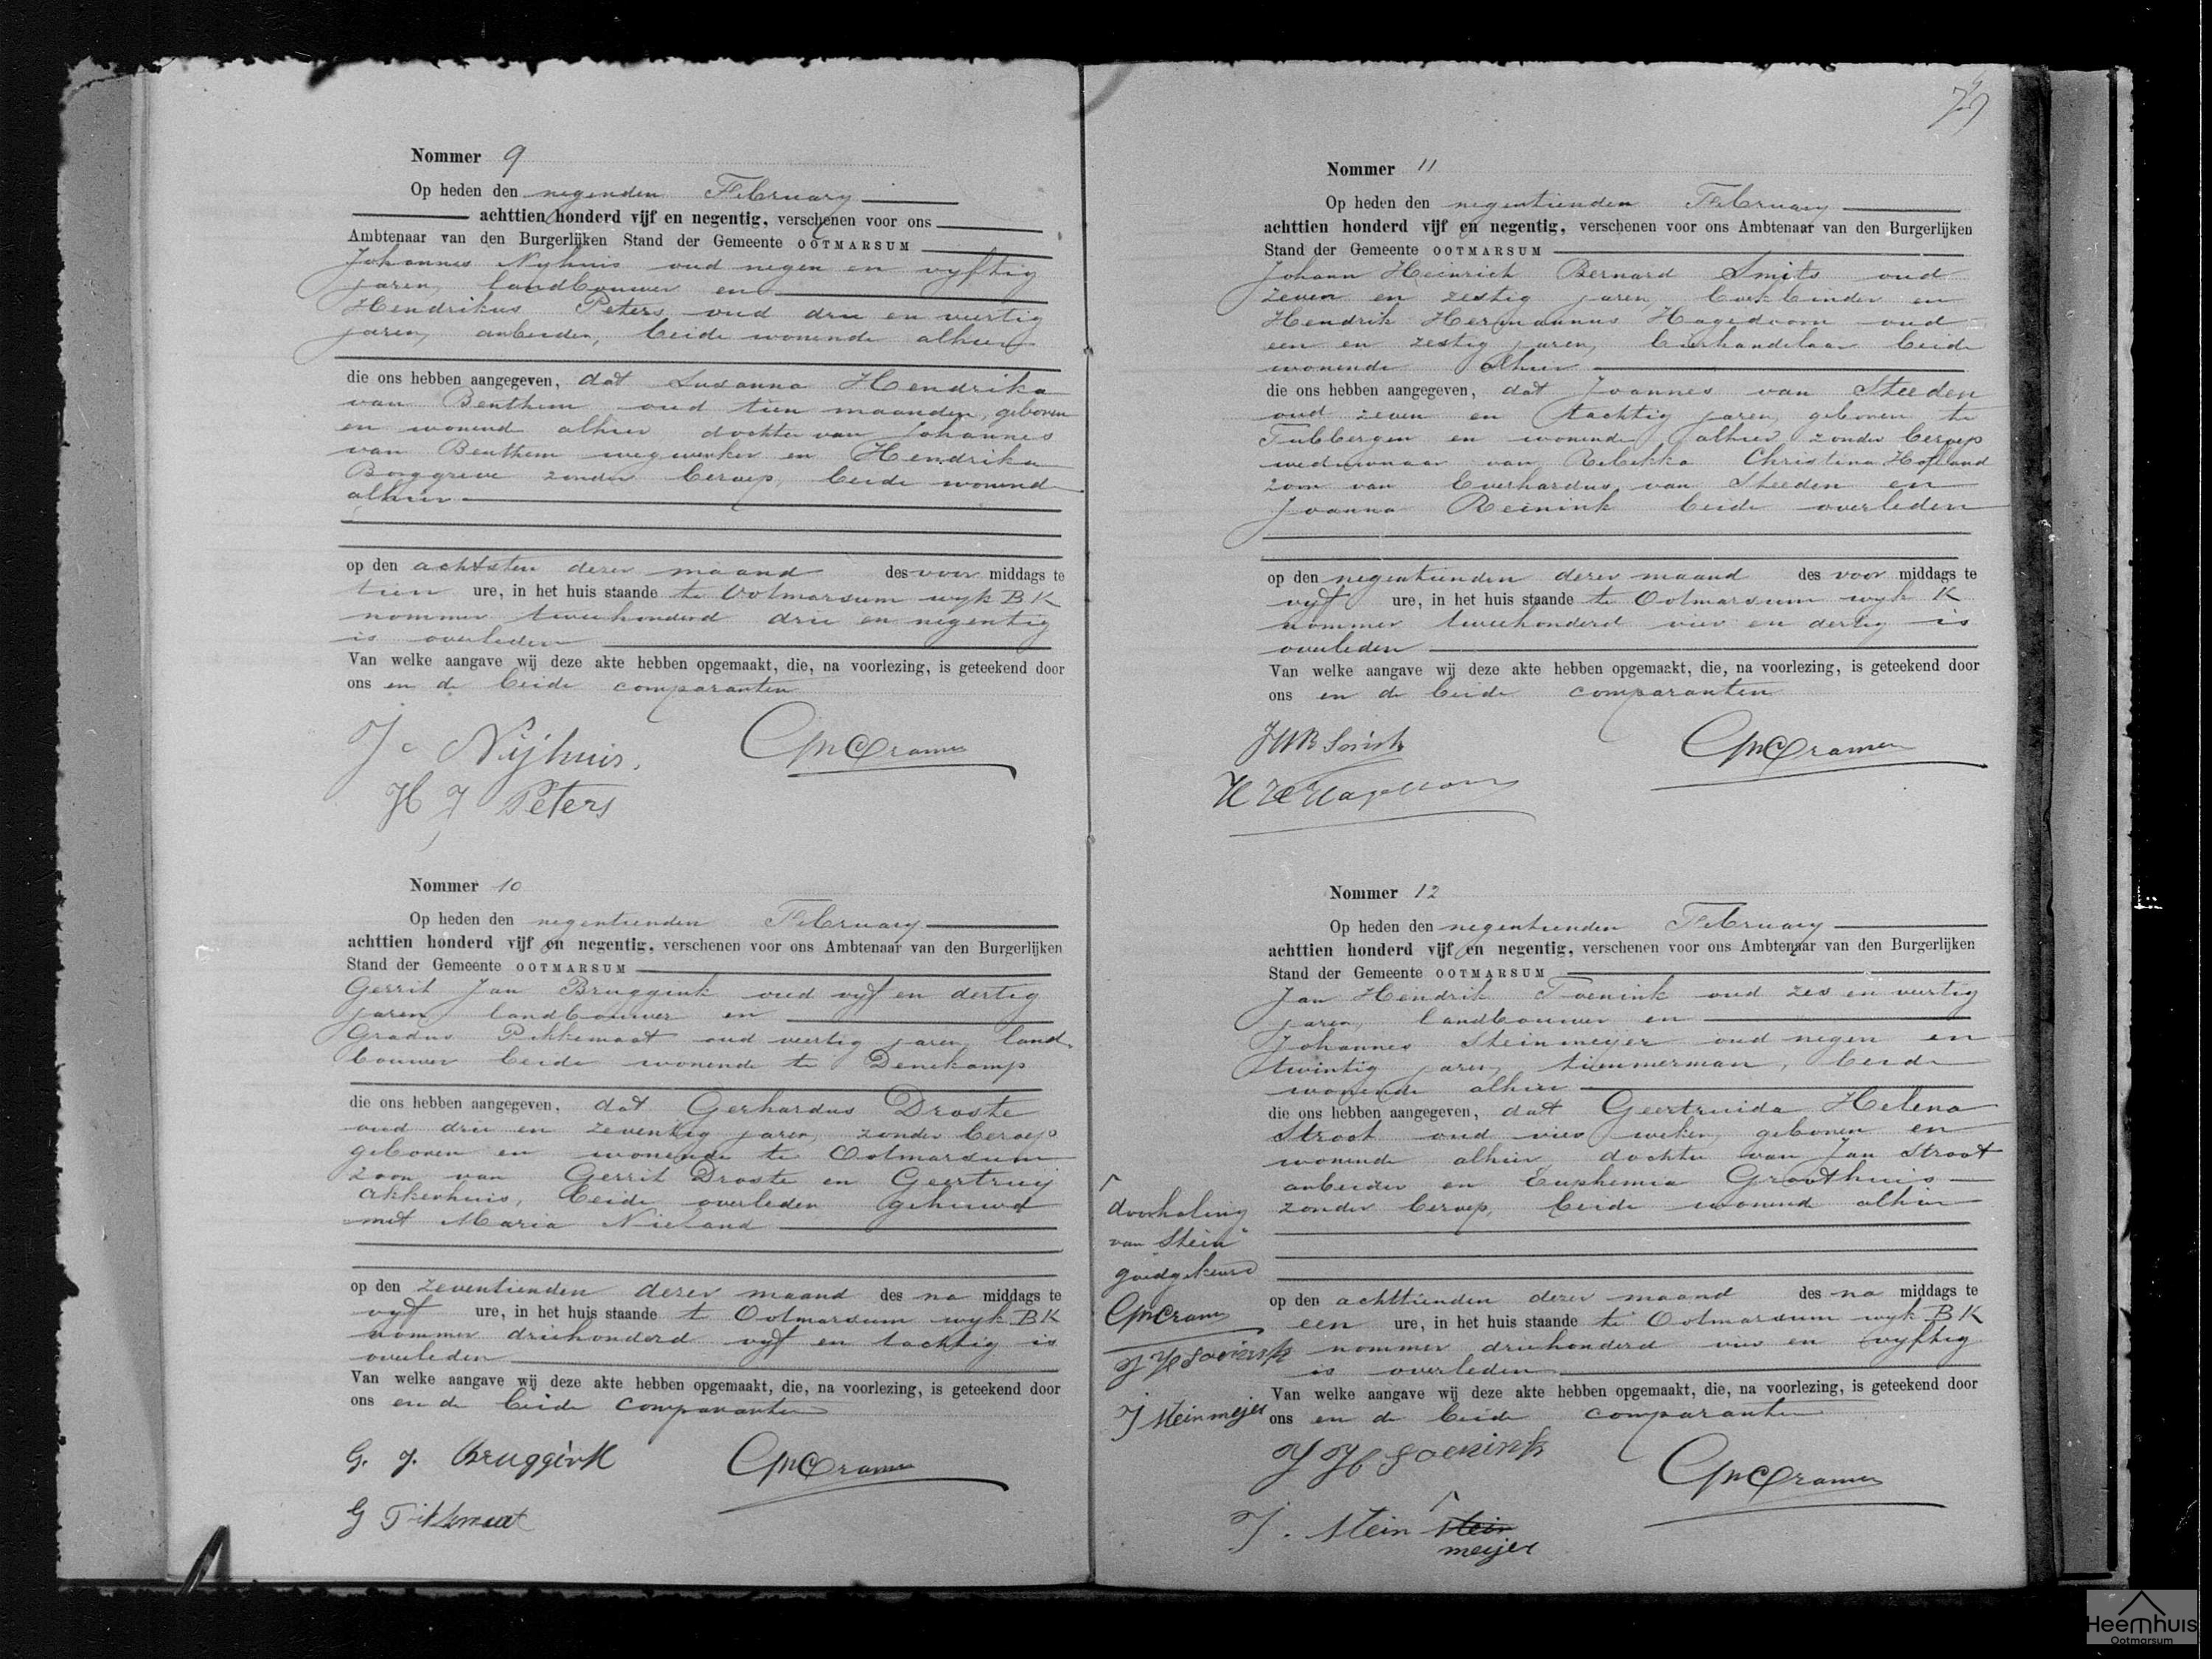 Nommer 9
Op heden den negenden February
achttien honderd vijf en negentig, verschenen voor ons
Ambtenaar van den Burgerlijken Stand der Gemeente OOTMARSUM
Johannes Nyhuis oud negen en vyftig
jaren, landbouwer en
Hendrikus Peters oud drie en veertig
jaren, arbeider, beide wonende alhier
die ons hebben aangegeven, dat Susanna Hendrika
van Benthem oud tien maanden, geboren
en wonend alhier dochter van Johannes
van Benthem wegwerker en Hendrika
Borggreve zonder beroep, beide wonend
alhier
op den achtsten dezer maand des voor middags te
tien ure, in het huis staande te Ootmarsum wyk BK
nommer tweehonderd drie en negentig
is overleden
Van welke aangave wij deze akte hebben opgemaakt, die, na voorlezing, is geteekend door
ons en de beide comparanten
J. Nijhuis.
Cramer
H J Peters
Nommer 10
Op heden den negentienden February
achttien honderd vijf en negentig, verschenen voor ons Ambtenaar van den Burgerlijken
Stand der Gemeente OOTMARSUM
Gerrit Jan Bruggink oud vyf en dertig
jaren landbouwer en
Gradus Pikkemaat oud veertig jaren, land
bouwer beide wonende te Denekamp
die ons hebben aangegeven, dat Gerhardus Droste
oud drie en zeventig jaren, zonder beroep
geboren en wonende te Ootmarsum
zoon van Gerrit Droste en Geertruij
Akkerhuis, beide overleden gehuwd
met Maria Nieland
op den zeventienden dezer maand des na middags te
vyf ure, in het huis staande te Ootmarsum wyk BK
nommer driehonderd vyf en tachtig is
overleden
Van welke aangave wij deze akte hebben opgemaakt, die, na voorlezing, is geteekend door
ons en de beide comparanten
G. J. Bruggink
Cramer
G Pikkemaat
Nommer 11
Op heden den negentienden February
achttien honderd vijf en negentig, verschenen voor ons Ambtenaar van den Burgerlijken
Stand der Gemeente OOTMARSUM
Johann Heinrich Bernard Smits oud
zeven en zestig jaren, boekbinder en
Hendrik Hermannus Hagedoorn oud
een en zestig jaren, boekhandelaar beide
wonende alhier
die ons hebben aangegeven, dat Joannes van Steeden
oud zeven en tachtig jaren, geboren te
Tubbergen en wonende alhier zonder beroep
weduwnaar van Rebekka Christina Hofland
zoon van Everhardus van Steeden en
Joanna Reinink beide overleden
op den negentienden dezer maand des voor middags te
vyf ure, in het huis staande te Ootmarsum wyk K
nommer tweehonderd vier en dertig is
overleden
Van welke aangave wij deze akte hebben opgemaakt, die, na voorlezing, is geteekend door
ons en de beide comparanten
JHB Smits
Cramer
H H Hagedoorn
Nommer 12
Op heden den negentienden February
achttien honderd vijf en negentig, verschenen voor ons Ambtenaar van den Burgerlijken
Stand der Gemeente OOTMARSUM
Jan Hendrik Soenink oud zes en veertig
jaren, landbouwer en
Johannes Steinmeijer oud negen en
twintig jaren, timmerman, beide
wonende alhier
die ons hebben aangegeven, dat Geertruida Helena
Stroot oud vier weken, geboren en
wonende alhier dochter van Jan Stroot
arbeider en Euphemia Groothuis
zonder beroep, beide wonend alhier
op den achttienden dezer maand des na middags te
een ure, in het huis staande te Ootmarsum wyk BK
nommer driehonderd vier en vyftig
is overleden
Van welke aangave wij deze akte hebben opgemaakt, die, na voorlezing, is geteekend door
ons en de beide comparanten
J H Soenink
Cramer
J. Stein stein
meijer
doorhaling
van "Stein"
goedgekeurd
Cramer
J H Soenink
J Steinmeijer
Heemhuis
Ootmarsum